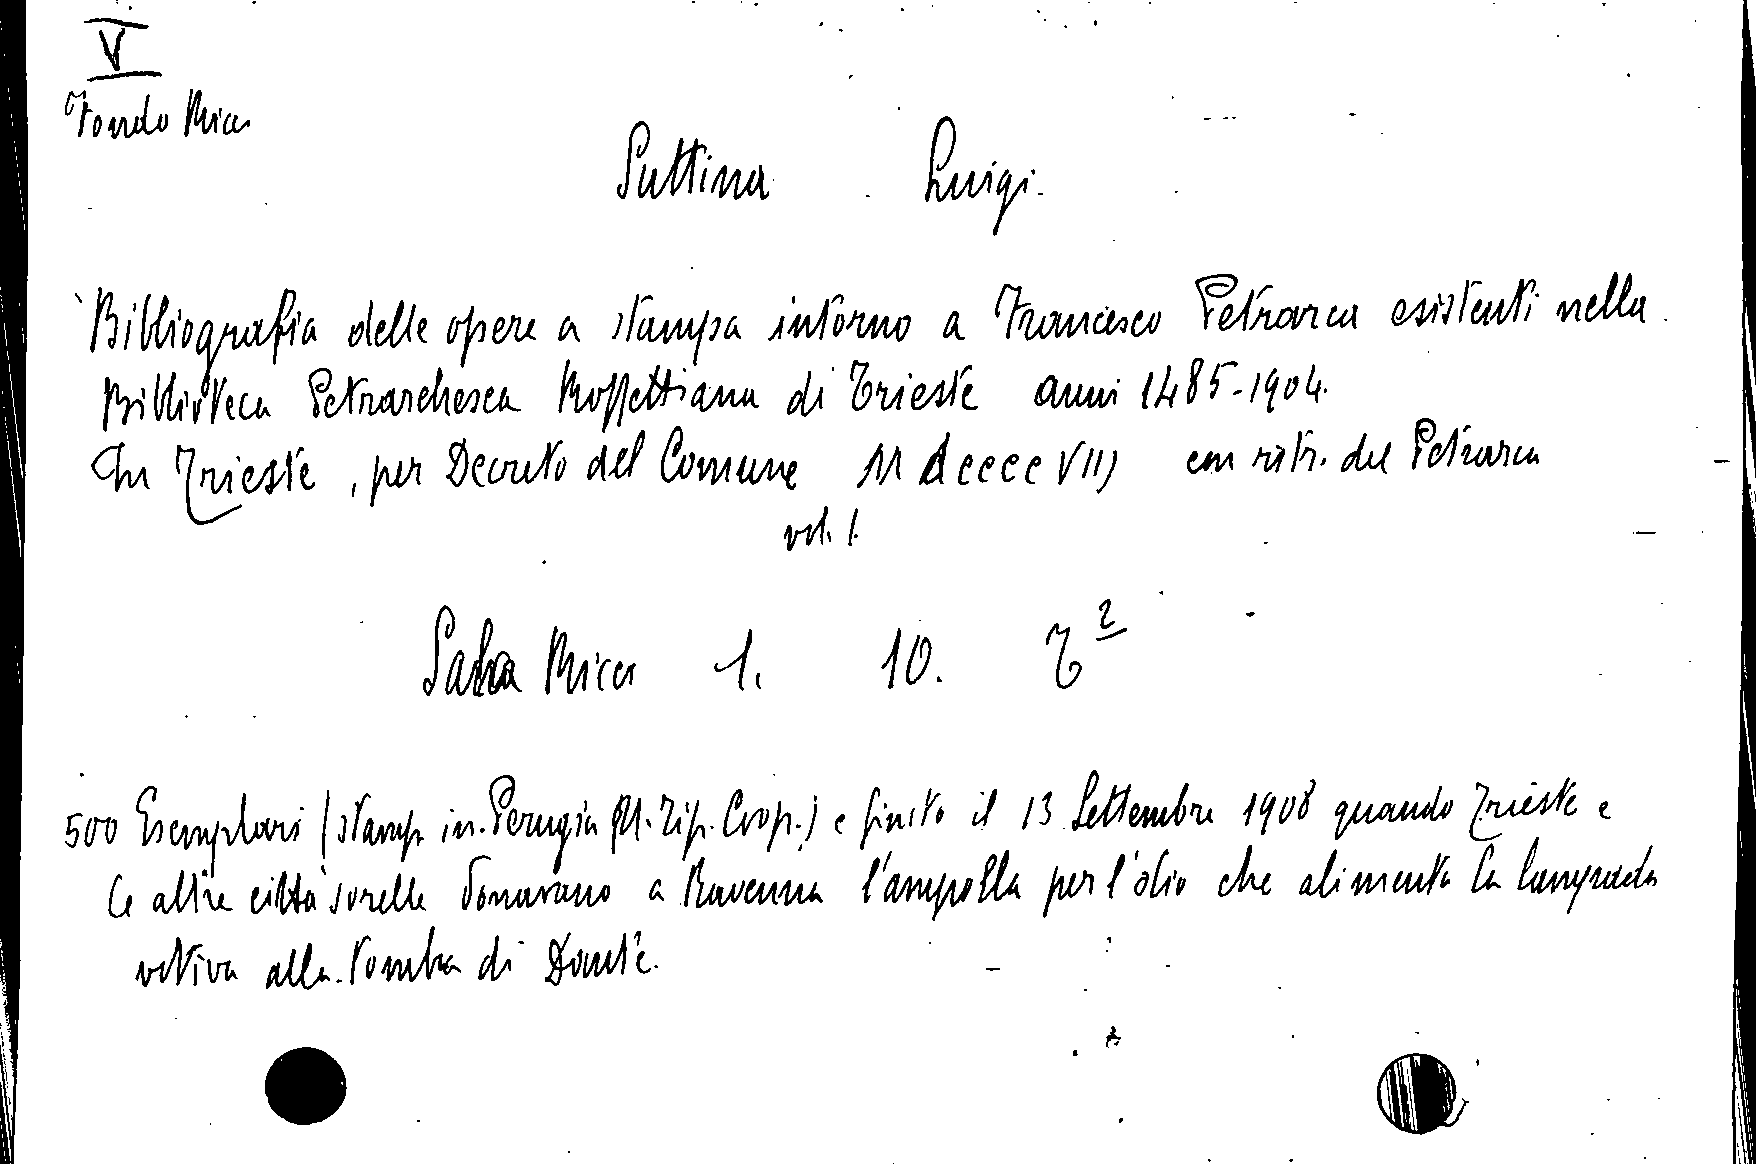 V
Fondo Ricci
Suttina Luigi.
Bibliografia delle opere a stampa intorno a Francesco Petrarca esistenti nella
Biblioteca Petrarchesca Rossettiana di Trieste anni 1485-1904.
In Trieste, per Decreto del Comune M dcccc VIII con ritr. del Petrarca
vol. 1.
Sala Ricci 1. 10. T 2
500 Esemplari (stamp. in Perugia Un. Tip. Coop.) e finito il 13 Settembre 1908 quando Trieste e
le altre città sorelle donavano a Ravenna l'ampolla per l'olio che alimenta la lampada
votiva alla tomba di Dante.